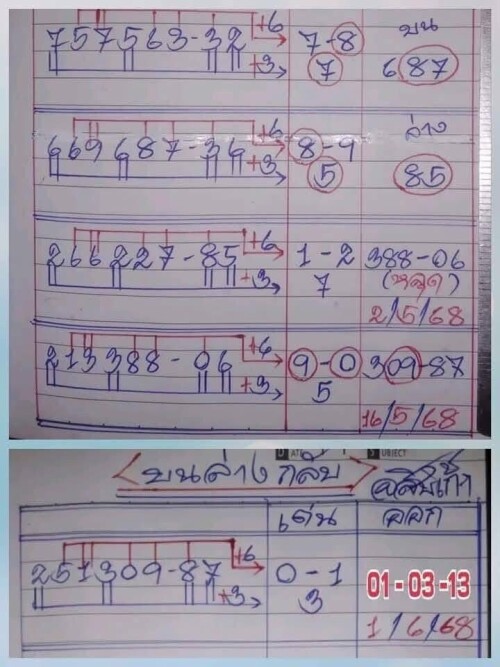 +6
757563-32 7-8 บน
+3 7 687
+6 ล่าง
669687-36 8-9
+3 5 85
+6
266227-85 1-2 388-06
+3 7 (หลุด)
2/5/68
+6
213388-06 9-0 309-87
+3 5
16/5/68
SUBJECT
<บนล่าง กลับ>
เด่น ออก
+6
251309-87 0-1 01-03-13
+3 3
1/6/68